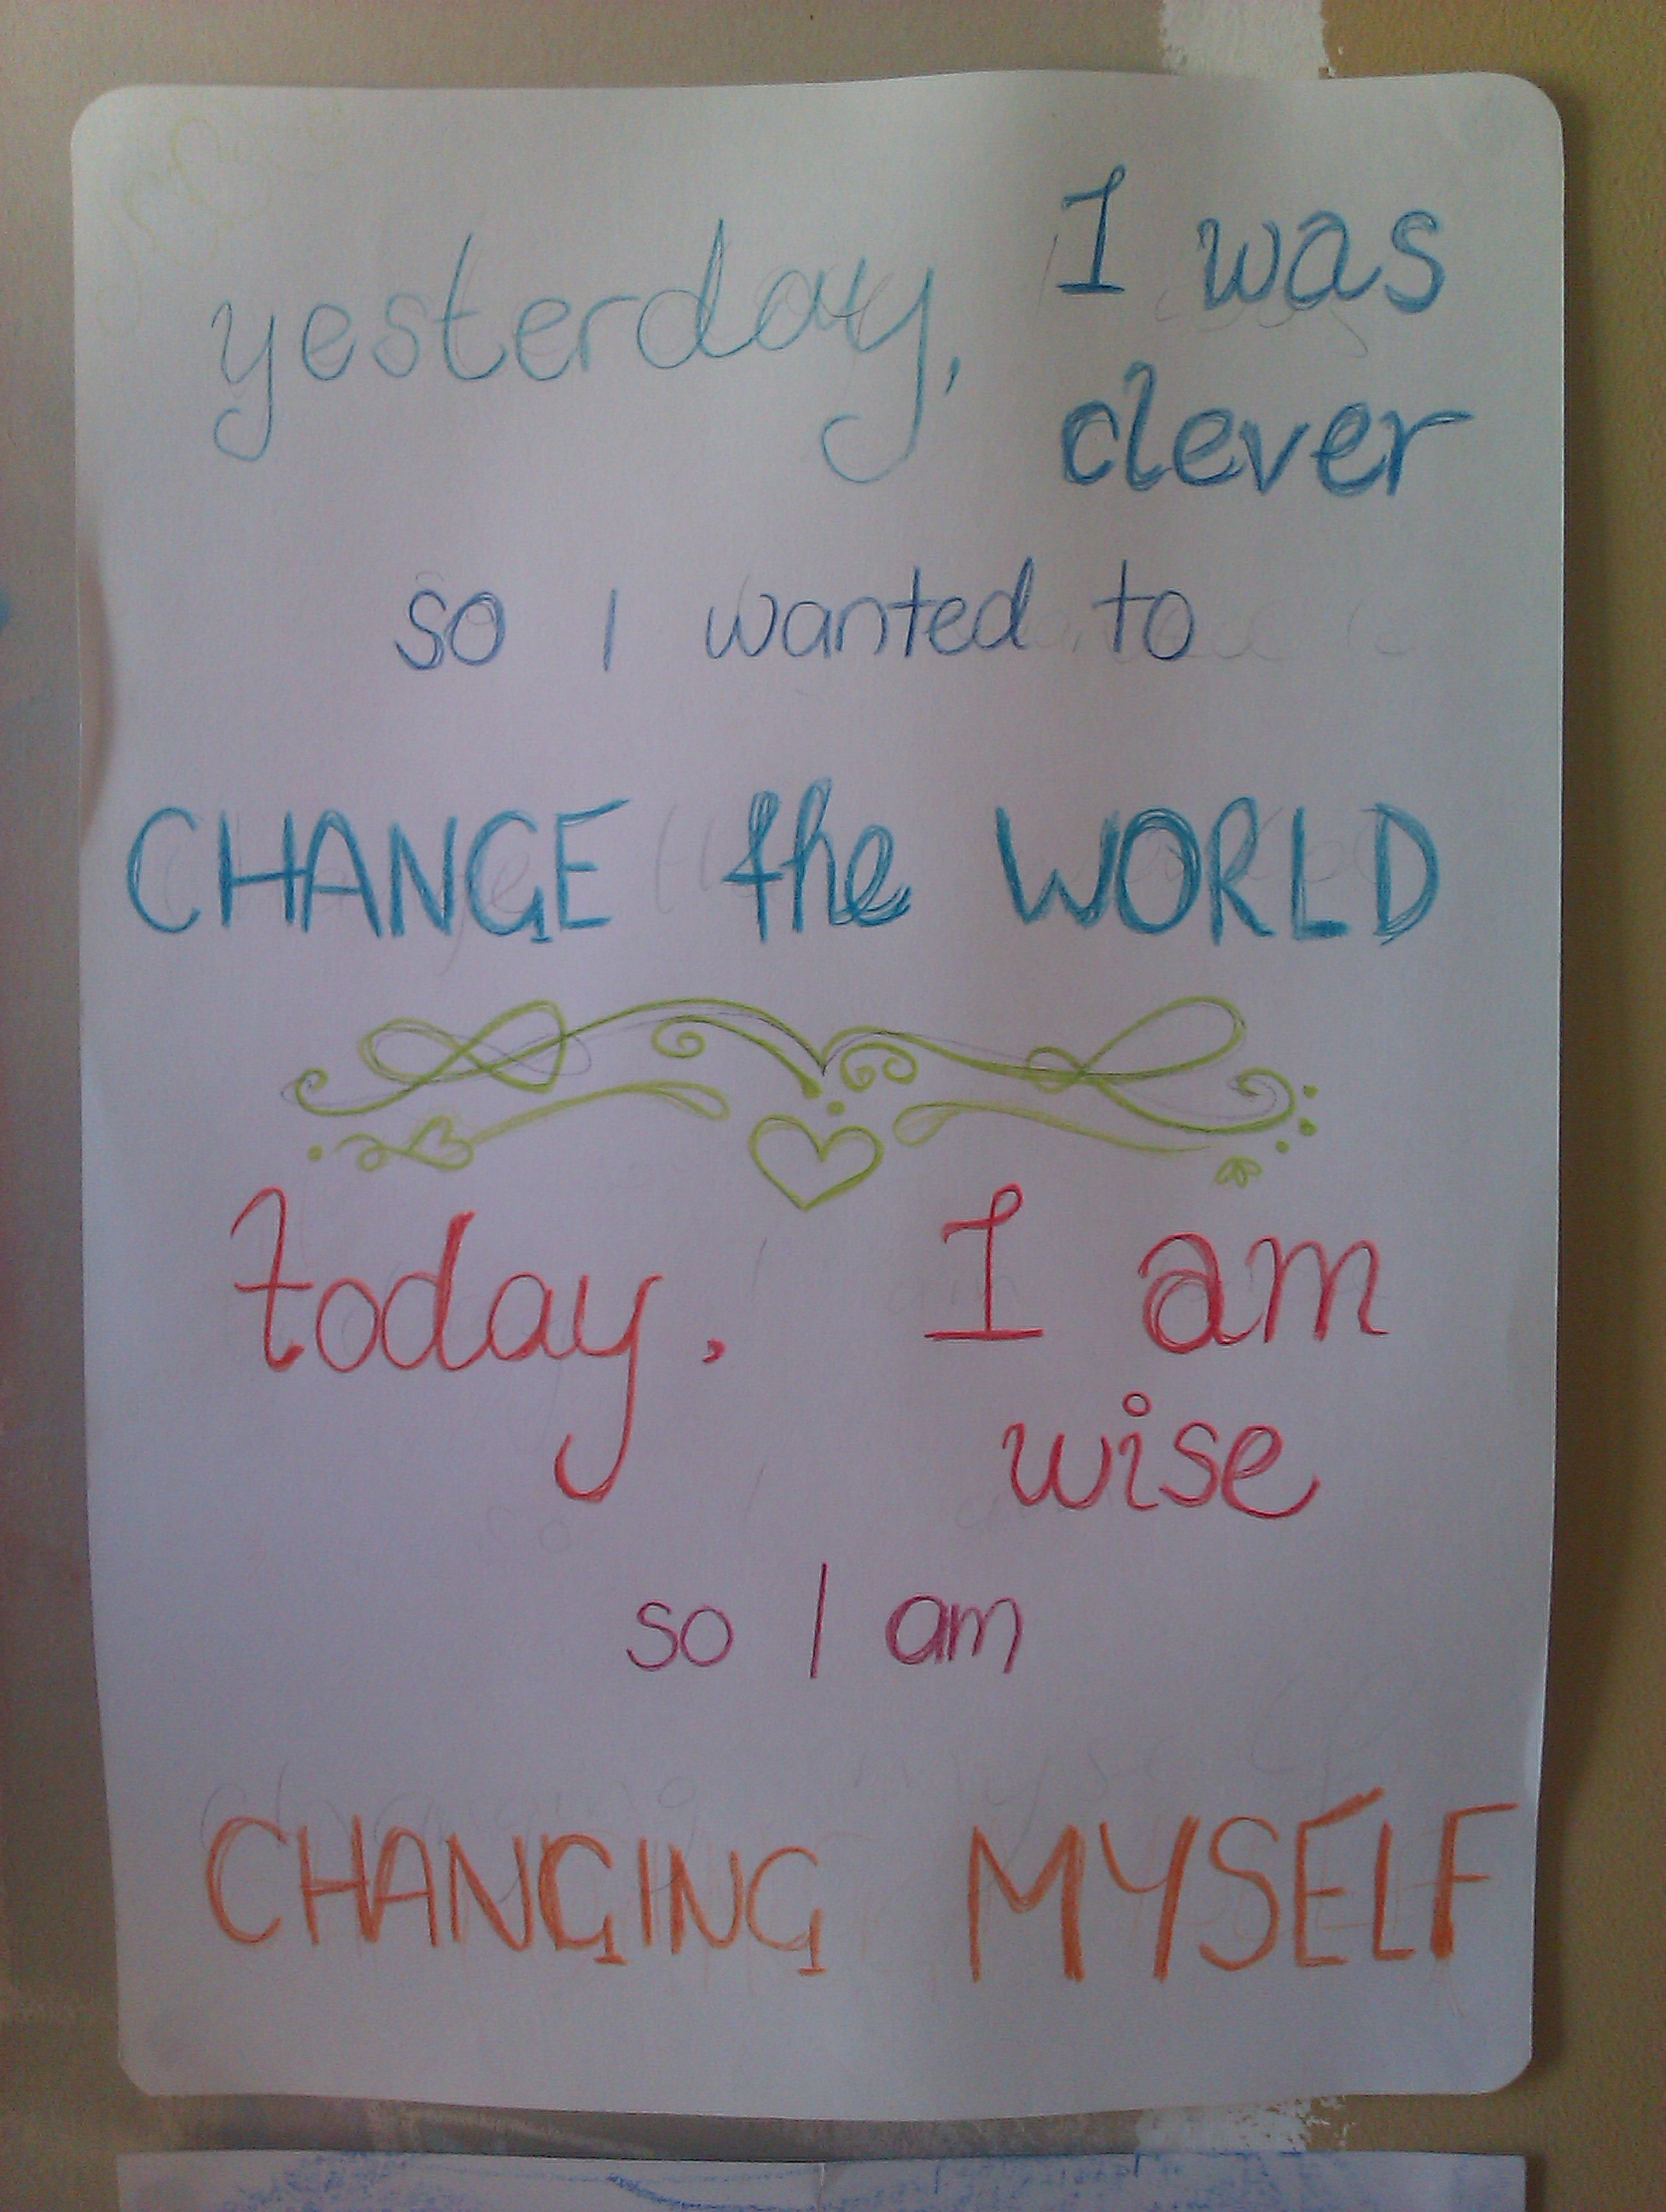 yesterday, I was
clever
so I wanted to
CHANGE the WORLD
today, I am
wise
so I am
CHANGING MYSELF